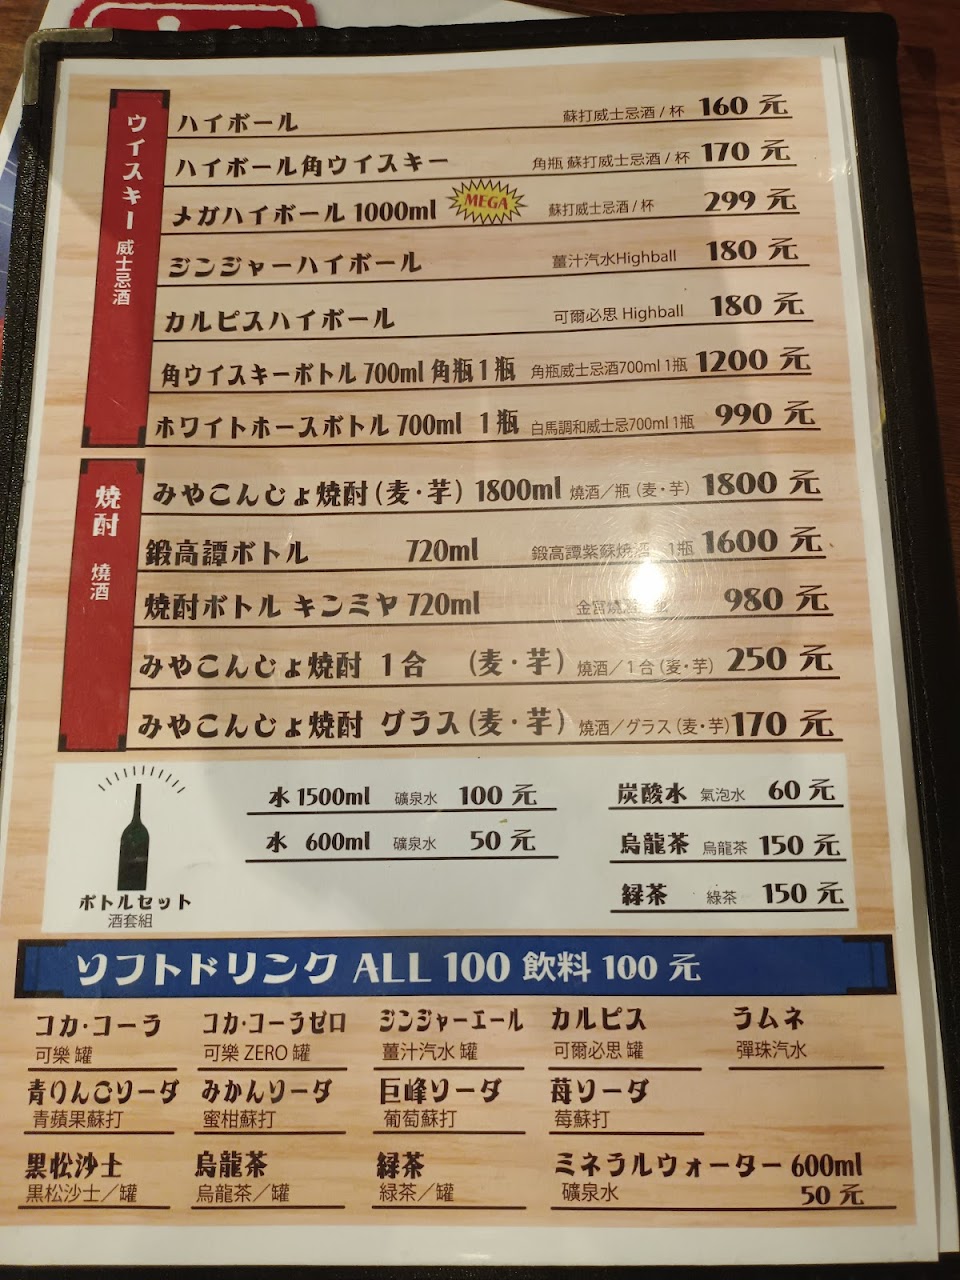 ウイスキー 威士忌酒
ハイボール 蘇打威士忌酒 / 杯 160 元
ハイボール角ウイスキー 角瓶 蘇打威士忌酒 / 杯 170 元
メガハイボール 1000ml MEGA 蘇打威士忌酒 / 杯 299 元
ジンジャーハイボール 薑汁汽水Highball 180 元
カルピスハイボール 可爾必思 Highball 180 元
角ウイスキーボトル 700ml 角瓶 1 瓶 角瓶威士忌酒700ml 1瓶 1200 元
ホワイトホースボトル 700ml 1 瓶 白馬調和威士忌700ml 1瓶 990 元
焼酎 燒酒
みやこんじょ焼酎 (麦・芋) 1800ml 燒酒／瓶 (麦・芋) 1800 元
鍛高譚ボトル 720ml 鍛高譚紫蘇燒酒 1瓶 1600 元
焼酎ボトル キンミヤ 720ml 金宮燒 980 元
みやこんじょ焼酎 1 合 (麦・芋) 燒酒／1 合 (麦・芋) 250 元
みやこんじょ焼酎 グラス (麦・芋) 燒酒／グラス (麦・芋) 170 元
ボトルセット
酒套組
水 1500ml 礦泉水 100 元
水 600ml 礦泉水 50 元
炭酸水 氣泡水 60 元
烏龍茶 烏龍茶 150 元
緑茶 綠茶 150 元
ソフトドリンク ALL 100 飲料 100 元
コカ・コーラ コカ・コーラゼロ ジンジャーエール カルピス ラムネ
可樂 罐 可樂 ZERO 罐 薑汁汽水 罐 可爾必思 罐 彈珠汽水
青りんごソーダ みかんソーダ 巨峰ソーダ 苺ソーダ
青蘋果蘇打 蜜柑蘇打 葡萄蘇打 莓蘇打
黒松沙士 烏龍茶 緑茶 ミネラルウォーター 600ml
黒松沙士／罐 烏龍茶／罐 緑茶／罐 礦泉水 50 元